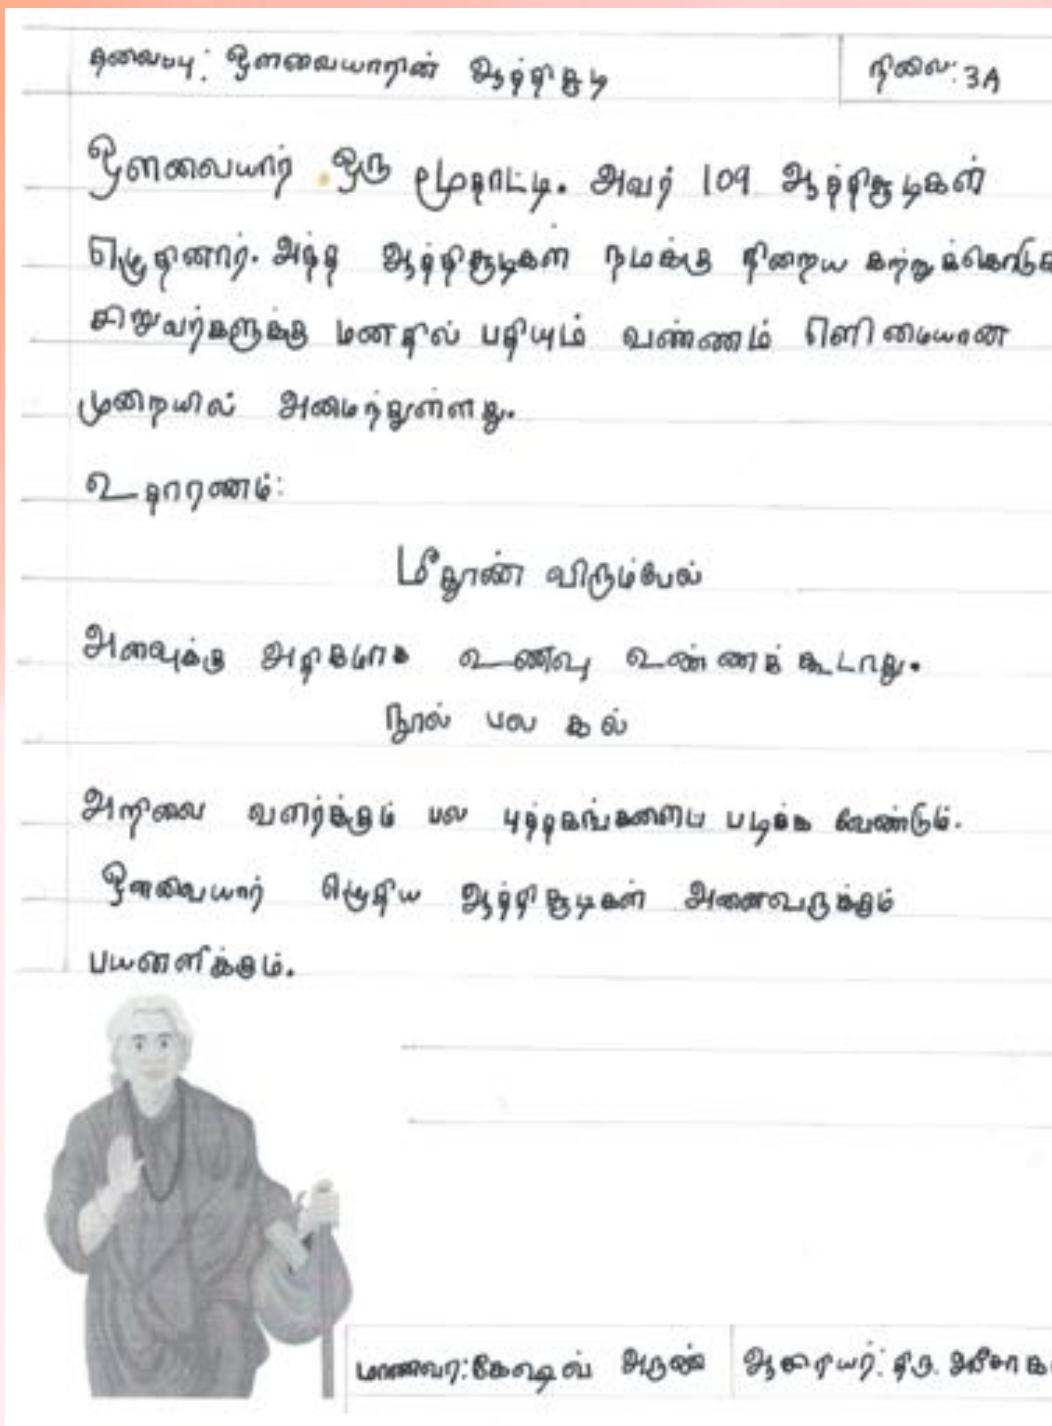 தலைப்பு: ஔவையாரின் ஆத்திசூடி
நிலை: 3A
ஔவையார் ஒரு மூதாட்டி. அவர் 109 ஆத்திசூடிகள்
எழுதினார். அந்த ஆத்திசூடிகள் நமக்கு நிறைய
சிறுவர்களுக்கு மனதில் பதியும் வண்ணம் எளிமையான
முறையில் அமைந்துள்ளது.
உதாரணம்:
மீதூண் விரும்பேல்
அளவுக்கு அதிகமாக உணவு உண்ணக் கூடாது.
நூல் பல கல்
அறிவை வளர்க்கும் பல புத்தகங்களைப் படிக்க வேண்டும்.
ஔவையார் எழுதிய ஆத்திசூடிகள் அனைவருக்கும்
பயனளிக்கும்.
மாணவர்: கேஷவ் அருண்
ஆசிரியர்: திரு.